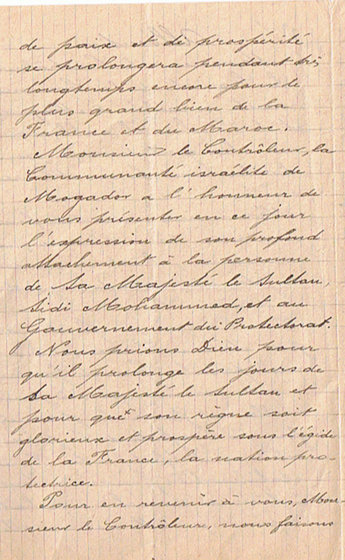 de paix et de prospérité
se prolongera pendant très
longtemps encore pour le
plus grand bien de la
France et du Maroc.
Monsieur le Contrôleur, la
Communauté israélite de
Mogador a l'honneur de
vous présenter en ce jour
l'expression de son profond
attachement à la personne
de Sa Majesté le Sultan,
Sidi Mohammed, et au
Gouvernement du Protectorat.
Nous prions Dieu pour
qu'il prolonge les jours de
Sa Majesté le Sultan et
pour que son règne soit
glorieux et prospère sous l'égide
de la France, la nation pro-
tectrice.
Pour en revenir à vous, Mon-
sieur le Contrôleur, nous faisons